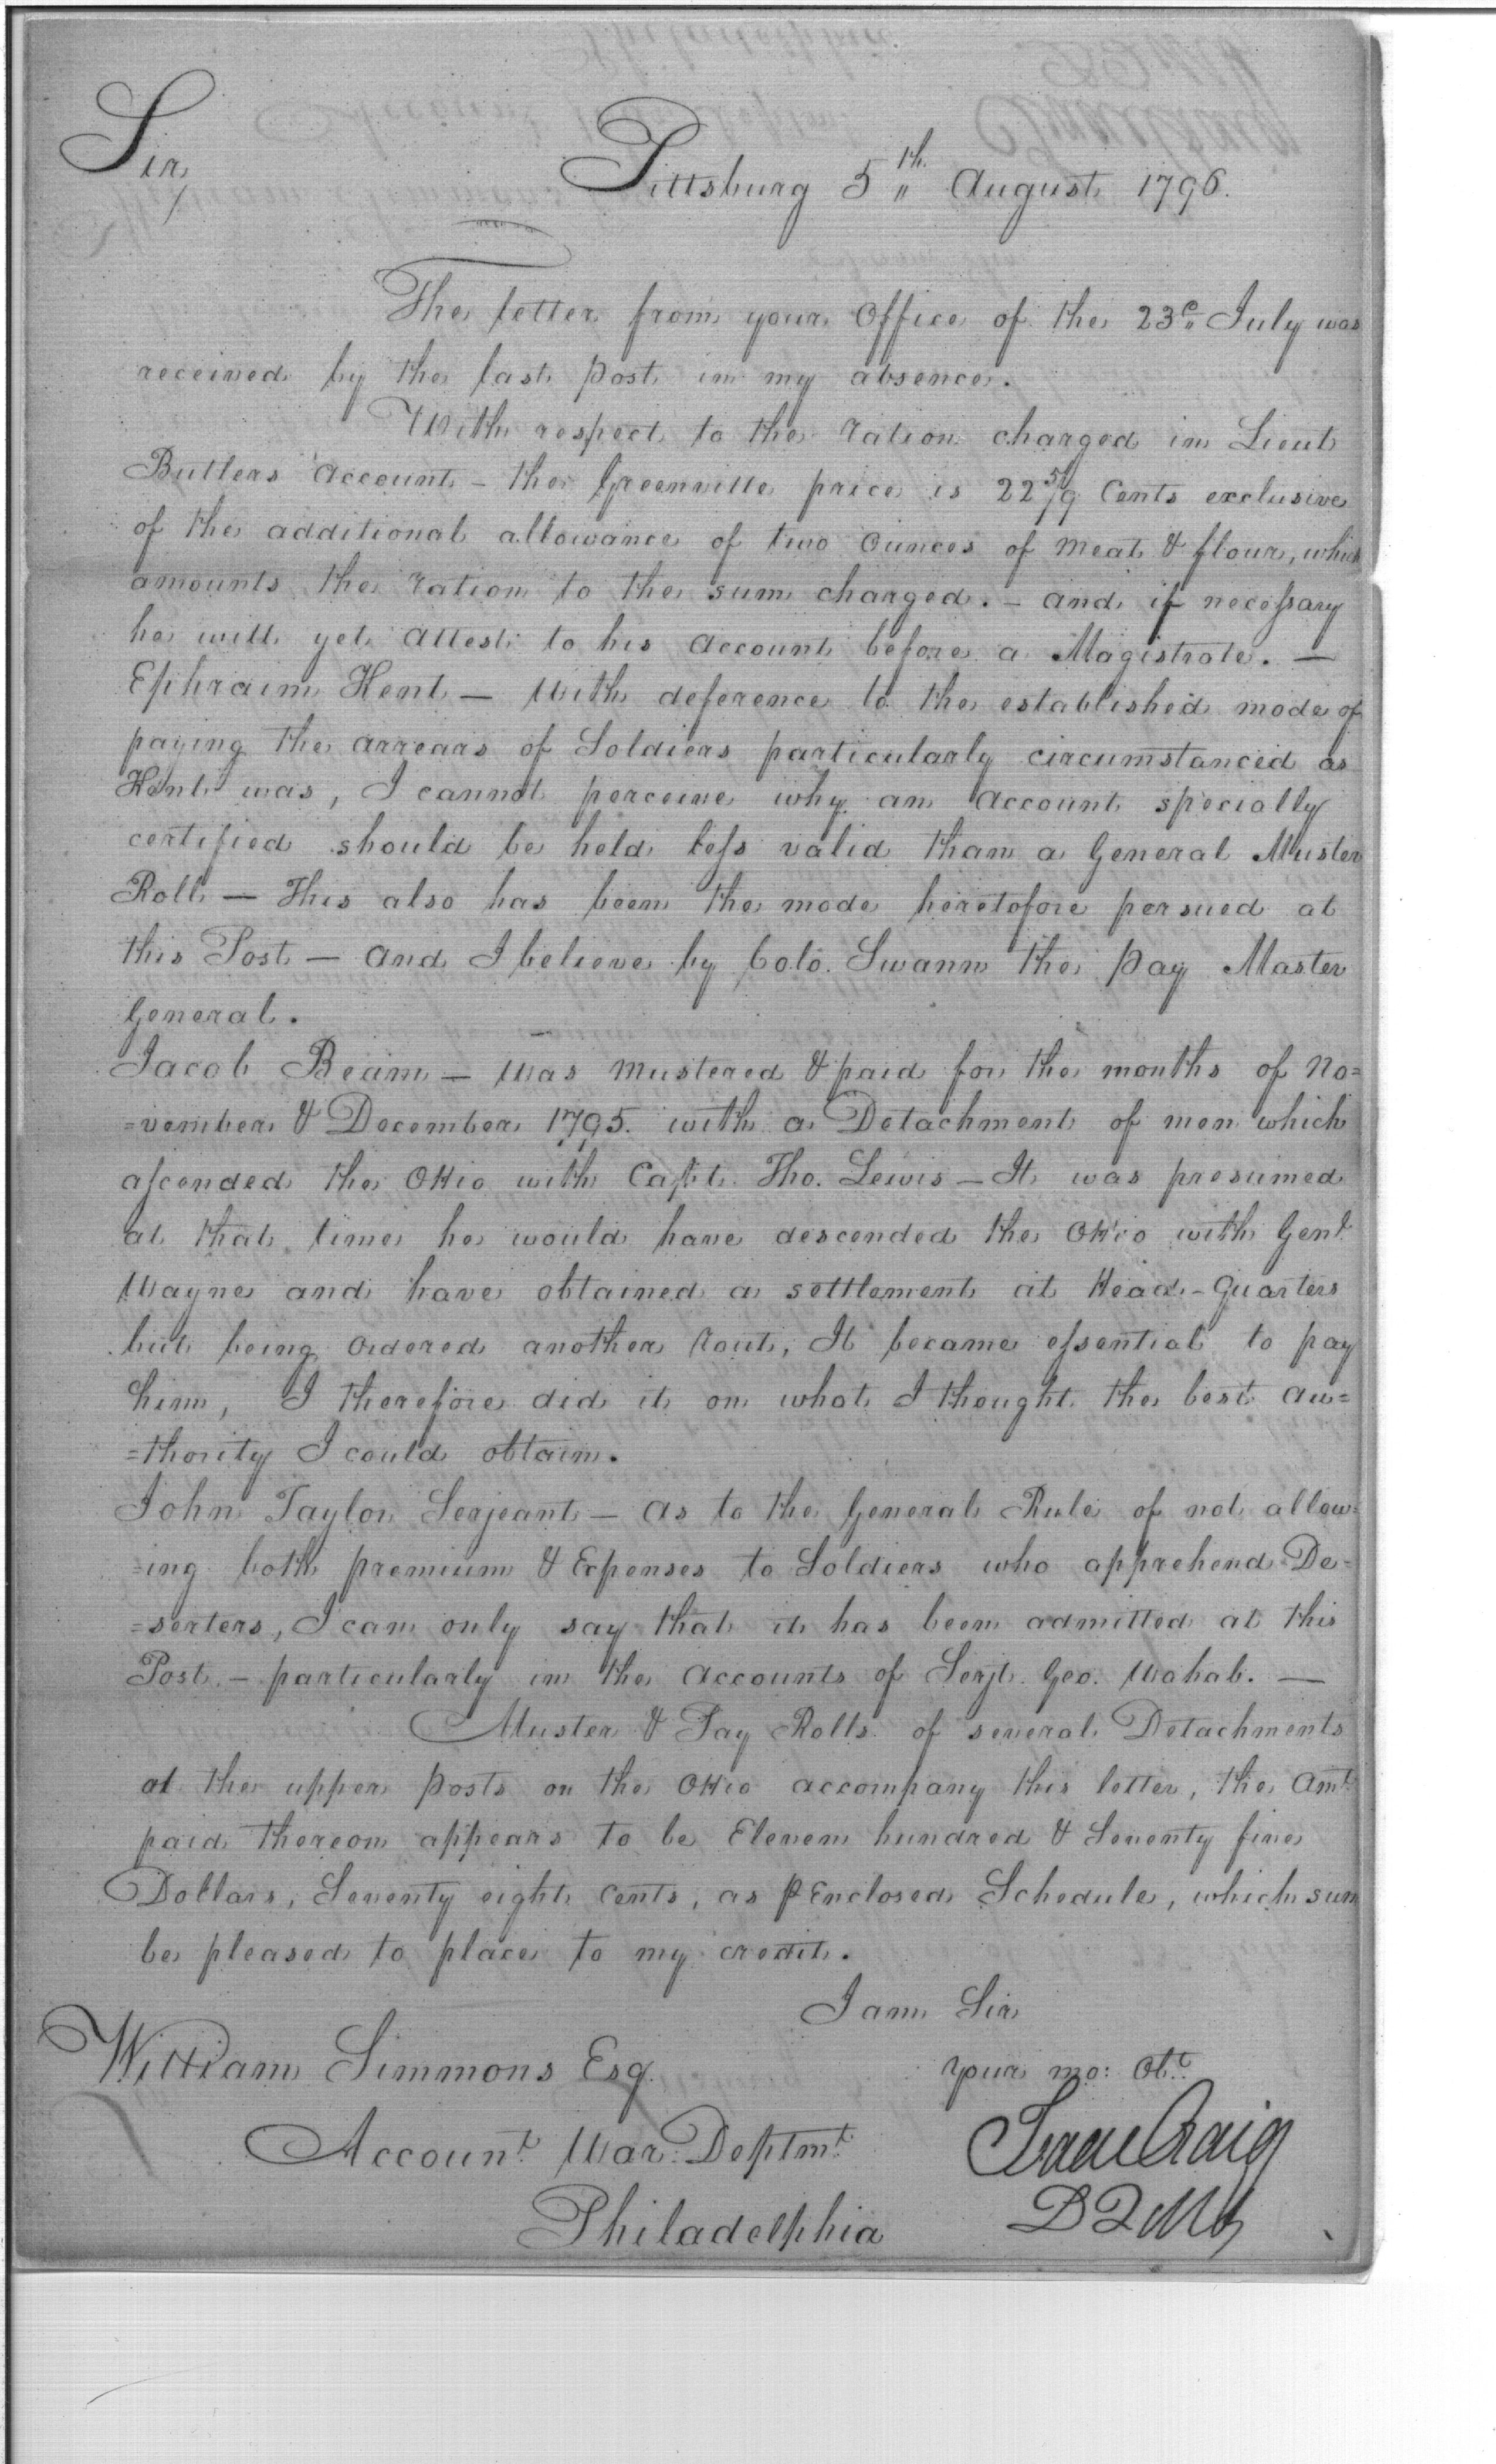 Sir,
Pittsburg 5th August 1796.
The letter from your Office of the 23d July was
received by the last post in my absence.
With respect to the ration charged in Lieut
Butlers account – the Greenville price is 22 5/9 Cents exclusive
of the additional allowance of two ounces of meat & flour, which
amounts the ration to the sum charged. – and if necessary
he will yet attest to his account before a Magistrate. —
Ephraim Kent — With deference to the established mode of
paying the arrears of Soldiers particularly circumstanced as
Kent was, I cannot perceive why an account specially
certified should be held less valid than a General Muster
Roll — This also has been the mode heretofore persued at
this Post — and I believe by Colo. Swann the Pay Master
General.
Jacob Beam — was mustered & paid for the months of No=
=vember & December 1795. with a Detachment of men which
ascended the Ohio with Capt. Tho. Lewis — It was presumed
at that time he would have descended the Ohio with Genl
Wayne and have obtained a settlement at Head-Quarters
but being ordered another rout, It became essential to pay
him, I therefore did it on what I thought the best au=
=thority I could obtain.
John Taylor Serjeant — as to the General Rule of not allow=
=ing both premium & Expenses to Soldiers who apprehend De=
=serters, I can only say that it has been admitted at this
Post – particularly in the accounts of Serjt. Geo. Wahab. —
Muster & Pay Rolls of several Detachments
at the upper posts on the Ohio accompany this letter, the Amt
paid thereon appears to be Eleven hundred & Seventy five
Dollars, Seventy eight cents, as P Enclosed Schedule, which sum
be pleased to place to my credit.
I am Sir
William Simmons Esq.
your mo: Obt.
Accountt War Deptmt.
Isaac Craig
Philadelphia
DQMG